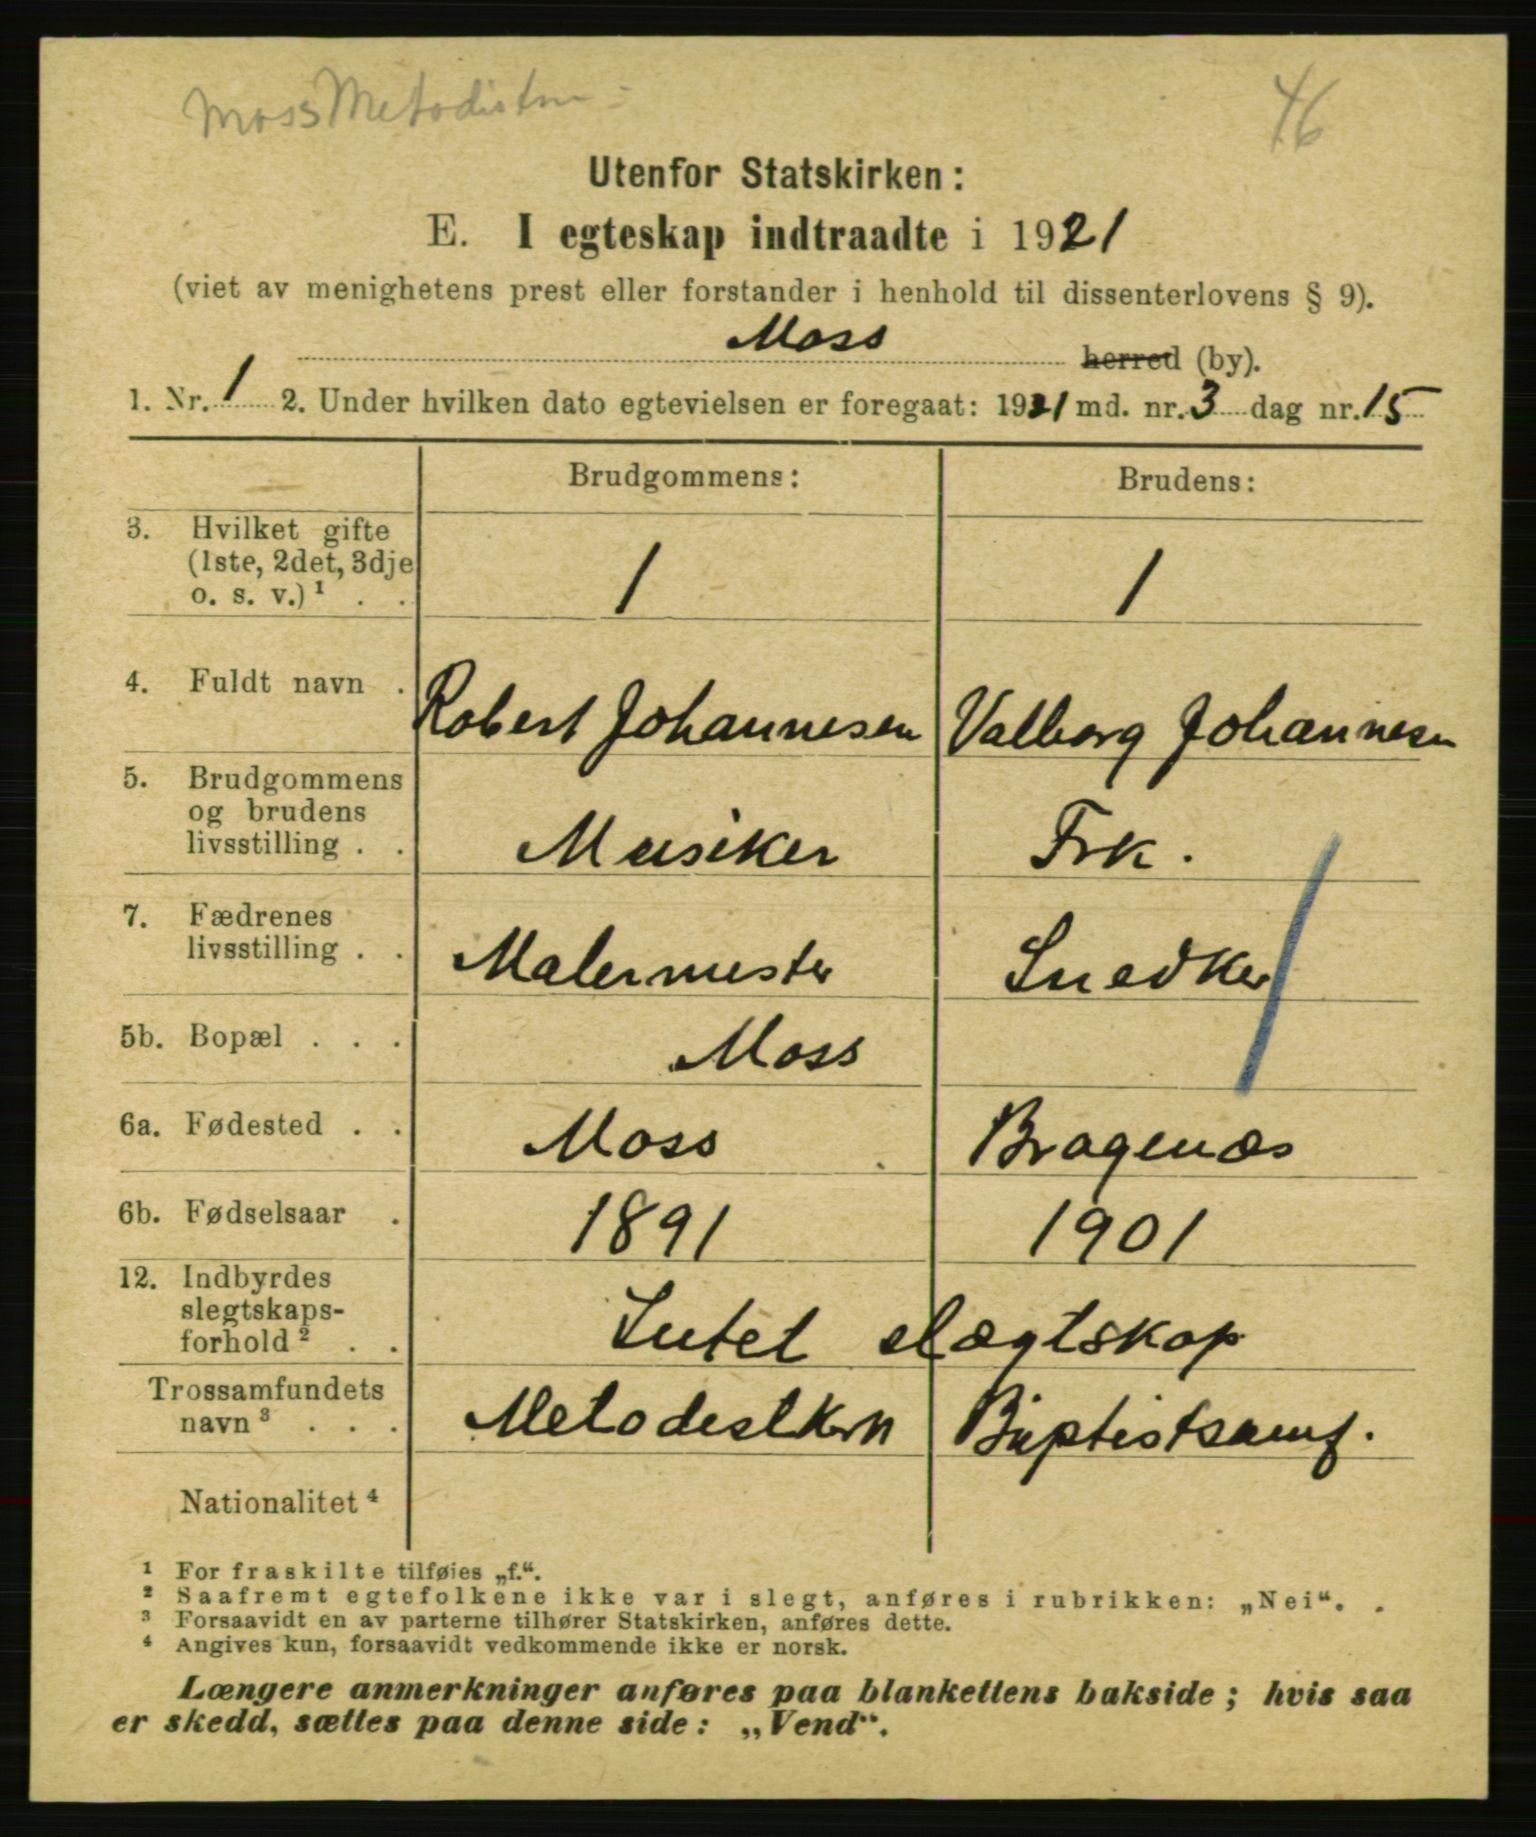 Moss Metodistm - 46
Utenfor Statskirken:
E. I egteskap indtraadte i 1921
(viet av menighetens prest eller forstander i henhold til dissenterlovens § 9).
Moss herred (by).
1. Nr. 1 2. Under hvilken dato egtevielsen er foregaat: 1921 md. nr. 3 dag nr. 15
Brudgommens: Brudens:
3. Hvilket gifte
(1ste, 2det, 3dje
o. s. v.)¹ . . 1 1
4. Fuldt navn . Robert Johannesen Valborg Johannesen
5. Brudgommens
og brudens
livsstilling . . Musiker Frk.
7. Fædrenes
livsstilling . . Malermester Snedker
5b. Bopæl . . . Moss
6a. Fødested . . Moss Bragenæs
6b. Fødselsaar . 1891 1901
12. Indbyrdes
slegtskaps-
forhold² . . Intet slægtskap
Trossamfundets
navn³ . . . Metodistkirken Baptistsamf.
Nationalitet⁴
¹ For fraskilte tilføies „f.“.
² Saafremt egtefolkene ikke var i slegt, anføres i rubrikken: „Nei“.
³ Forsaavidt en av parterne tilhører Statskirken, anføres dette.
⁴ Angives kun, forsaavidt vedkommende ikke er norsk.
Længere anmerkninger anføres paa blankettens bakside; hvis saa
er skedd, sættes paa denne side: „Vend“.